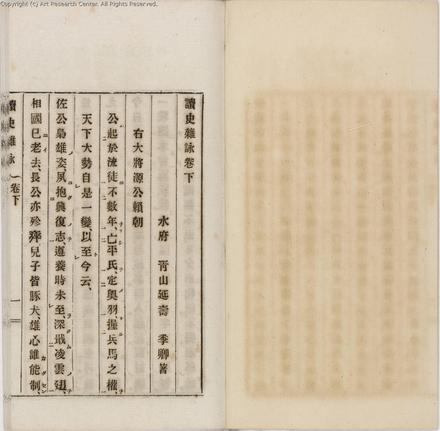 Copyright (c) Art Research Center. All Rights Reserved.
讀史雜詠卷下
水府 靑山延壽 季卿著
右大將源公賴朝
公起於流徒不數年、亡平氏、定奥羽、握兵馬之權、
天下大勢自是一變、以至今云、
佐公梟雄姿、夙抱興復志、遵養時未至、深戢凌雲翅、
相國已老去、長公亦殄 兒子皆豚犬、雄心誰能制、
讀史雜詠 卷下
一